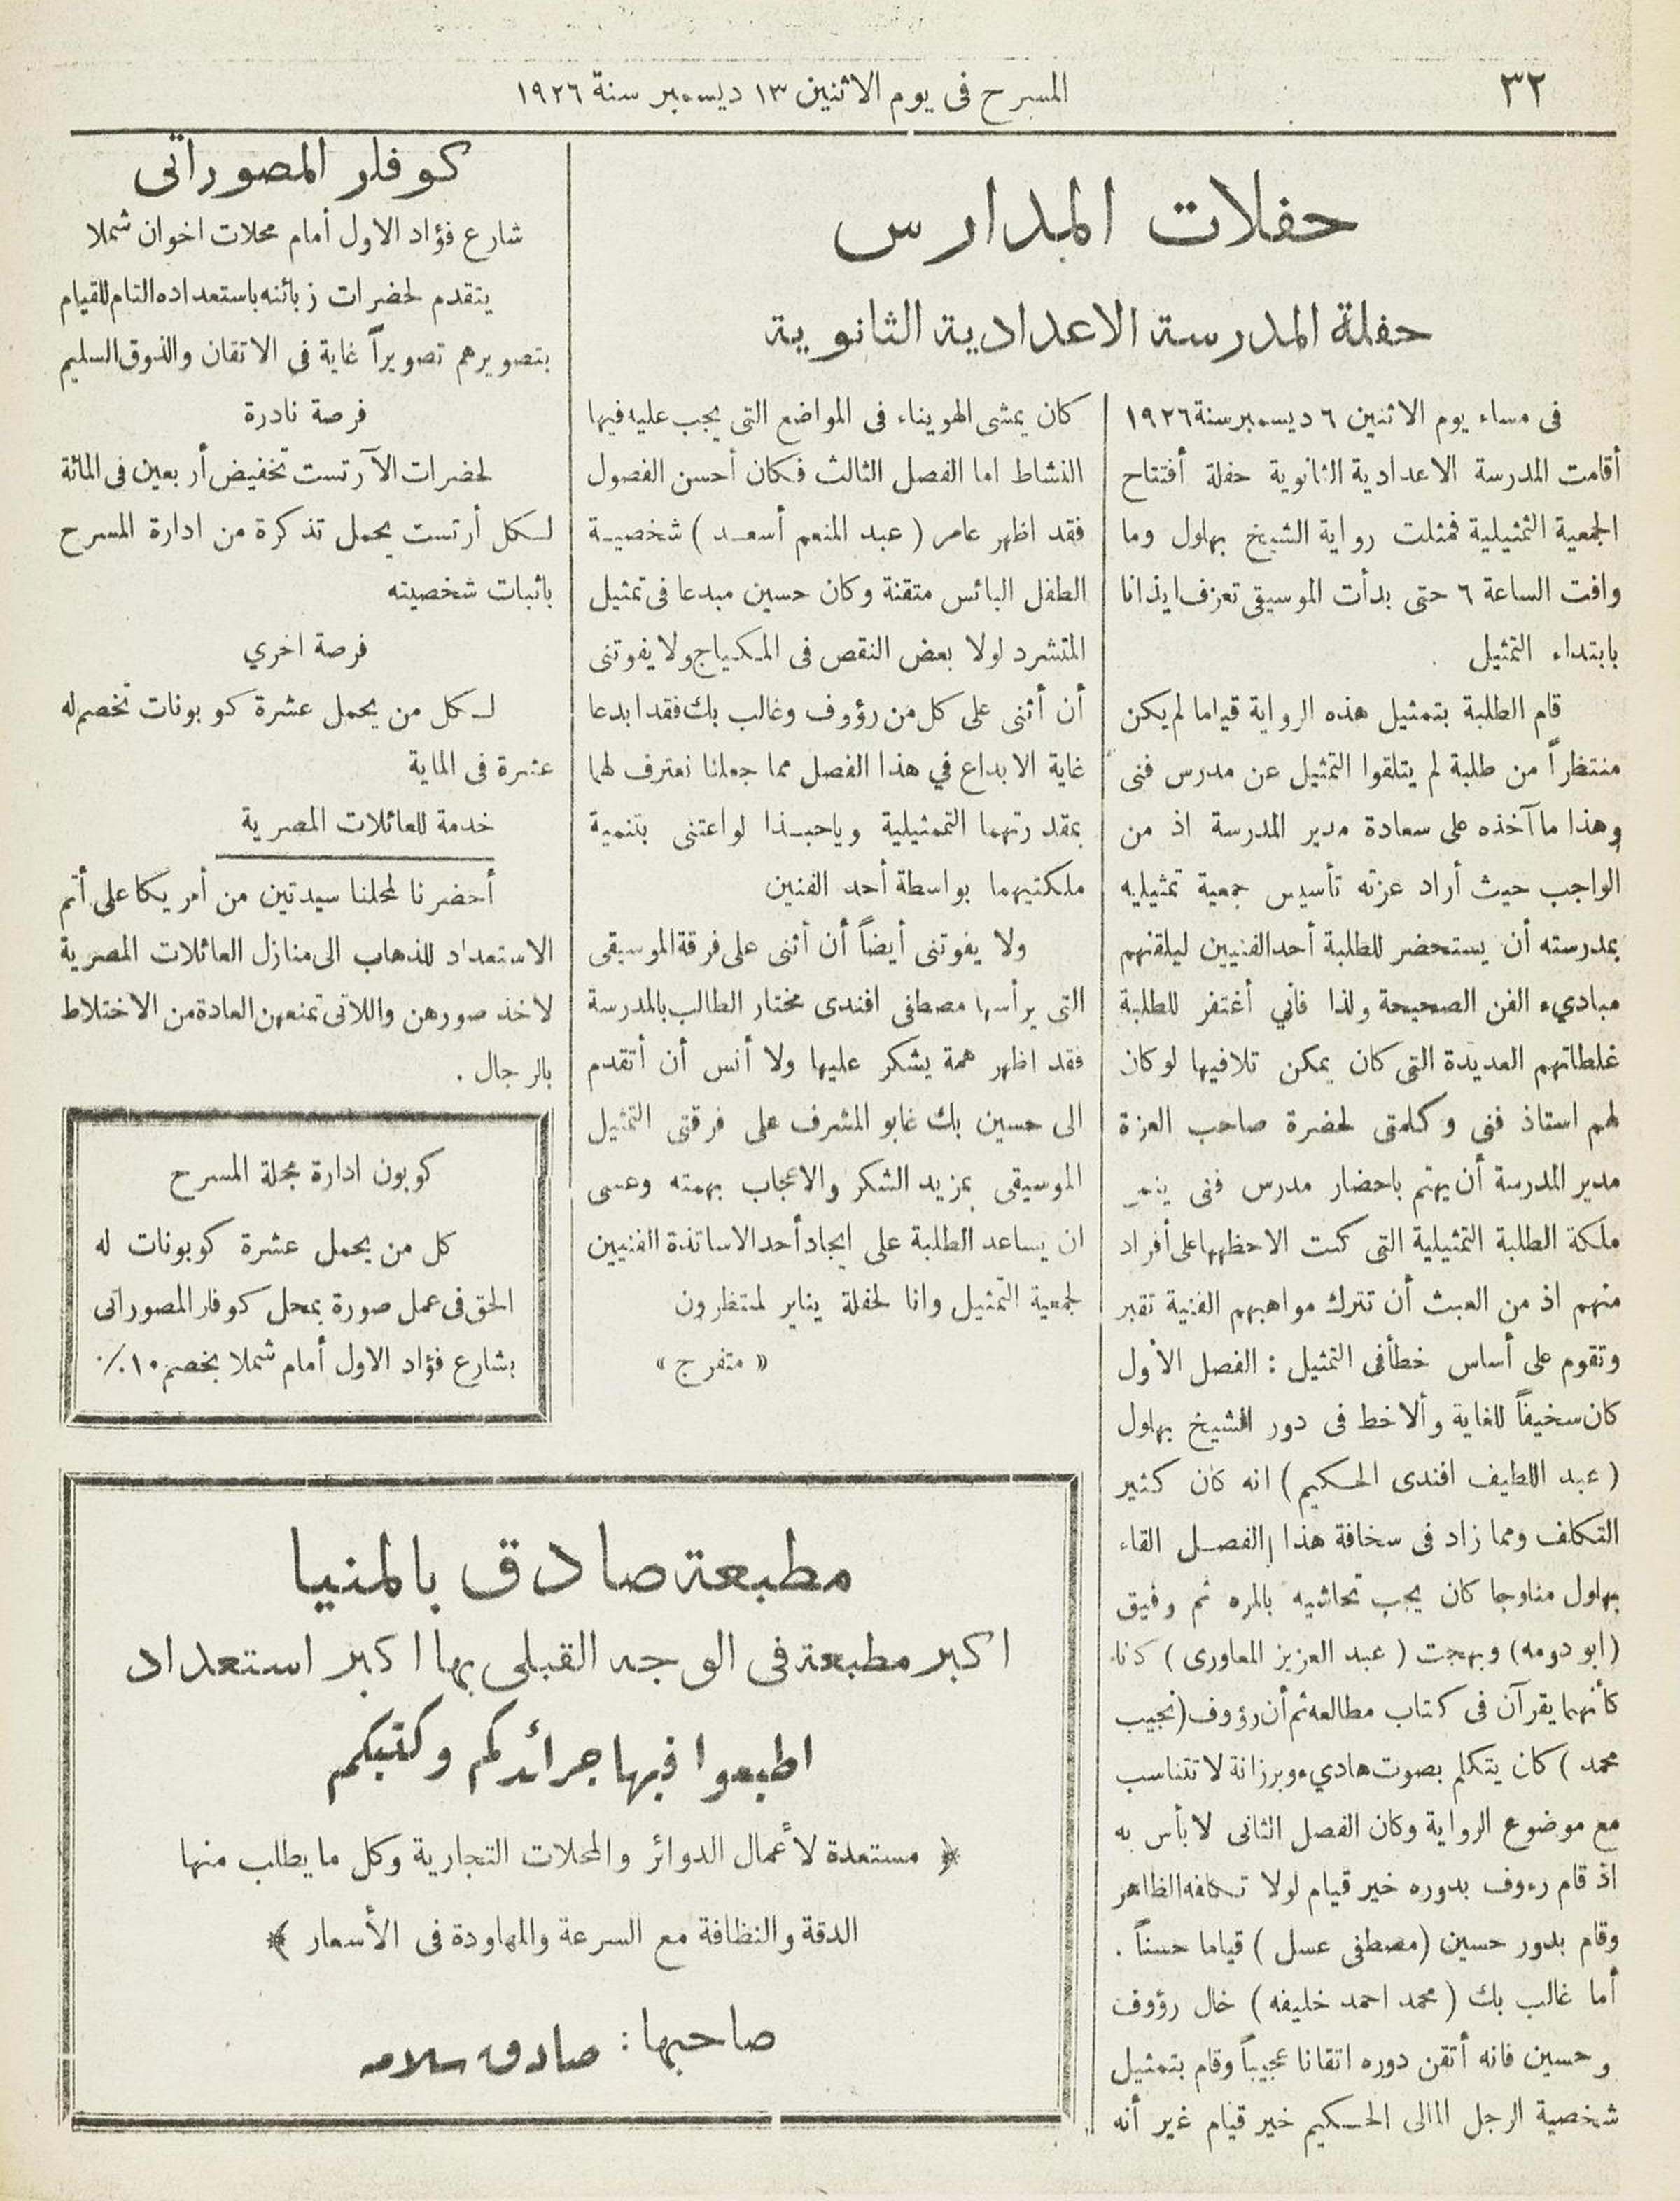 ٣٢
المسرح فى يوم الاثنين ١٣ ديسمبر سنة ١٩٢٦
حفلات المدارس
حفلة المدرسة الاعدادية الثانوية
فى مساء يوم الاثنين ٦ ديسمبر سنة ١٩٢٦
أقامت المدرسة الاعدادية الثانوية حفلة أفتتاح
الجمعية التمثيلية فمثلت رواية الشيخ بهلول وما
وافت الساعة ٦ حتى بدأت الموسيقى تعزف ايذانا
بابتداء التمثيل .
قام الطلبة بتمثيل هذه الرواية قياما لم يكن
منتظراً من طلبة لم يتلقوا التمثيل عن مدرس فنى
وهذا ما آخذه على سعادة مدير المدرسة اذ من
الواجب حيث أراد عزته تأسيس جمعية تمثيليه
بمدرسته أن يستحضر للطلبة أحد الفنيين ليلقنهم
مباديء الفن الصحيحة ولذا فأني أغتفر للطلبة
غلطاتهم العديدة التى كان يمكن تلافيها لو كان
لهم استاذ فنى وكلمتى لحضرة صاحب العزة
مدير المدرسة أن يهتم باحضار مدرس فنى ينمى
ملكة الطلبة التمثيلية التى كنت الاحظها على أفراد
منهم اذ من العبث أن تترك مواهبهم الفنية تقبر
وتقوم على أساس خطأ فى التمثيل : الفصل الاول
كان سخيفاً للغاية وألاحظ فى دور الشيخ بهلول
( عبد اللطيف افندى الحكيم ) انه كان كثير
التكلف ومما زاد فى سخافة هذا الفصل القاء
بهلول منلوجا كان يجب تحاشيه بالمره ثم وفيق
( ابو دومه ) وبهجت ( عبد العزيز المعاورى ) كانا
كأنهما يقرآن فى كتاب مطالعه ثم أن رؤوف ( نجيب
محمد ) كان يتكلم بصوت هاديء وبرزانة لا تتناسب
مع موضوع الرواية وكان الفصل الثانى لا بأس به
اذ قام رءوف بدوره خير قيام لولا تكلفه الظاهر
وقام بدور حسين ( مصطفى عسل ) قياما حسناً .
أما غالب بك ( محمد احمد خليفه ) خال رؤوف
وحسين فانه أتقن دوره اتقانا عجيباً وقام بتمثيل
شخصية الرجل المالى الحكيم خير قيام غير أنه
كان يمشى الهويناء فى المواضع التى يجب عليه فيها
النشاط اما الفصل الثالث فكان أحسن الفصول
فقد اظهر عامر ( عبد المنعم أسعد ) شخصية
الطفل البائس متقنة وكان حسين مبدعا فى تمثيل
المتشرد لولا بعض النقص فى المكياج ولا يفوتنى
أن أثنى على كل من رؤوف وغالب بك فقد ابدعا
غاية الابداع في هذا الفصل مما جعلنا نعترف لهما
بمقدرتهما التمثيلية وياحبذا لو اعتنى بتنمية
ملكتيهما بواسطة أحد الفنين
ولا يفوتنى أيضاً أن أثنى على فرقة الموسيقى
التى يرأسها مصطفى افندى مختار الطالب بالمدرسة
فقد اظهر همة يشكر عليها ولا أنس أن أتقدم
الى حسين بك غابو المشرف على فرقتى التمثيل
الموسيقى بمزيد الشكر والاعجاب بهمته وعسى
ان يساعد الطلبة على ايجاد أحد الاساتذة الفنيين
لجمعية التمثيل وانا لحفلة يناير لمنتظرون
« متفرج »
كوفلر المصوراتى
شارع فؤاد الاول أمام محلات اخوان شملا
يتقدم لحضرات زبائنه باستعداده التام للقيام
بتصويرهم تصويراً غاية فى الاتقان والذوق السليم
فرصة نادرة
لحضرات الآرتست تخفيض أربعين فى المائة
لكل أرتست يحمل تذكرة من ادارة المسرح
باثبات شخصيته
فرصة اخري
لكل من يحمل عشرة كوبونات تخصم له
عشرة فى الماية
خدمة للعائلات المصرية
أحضرنا لمحلنا سيدتين من أمريكا على أتم
الاستعداد للذهاب الى منازل العائلات المصرية
لاخذ صورهن واللاتى تمنعهن العادة من الاختلاط
بالرجال .
كوبون ادارة مجلة المسرح
كل من يحمل عشرة كوبونات له
الحق فى عمل صورة بمحل كوفلر المصوراتى
بشارع فؤاد الاول أمام شملا بخصم ١٠٪
مطبعة صادق بالمنيا
اكبر مطبعة فى الوجه القبلى بها اكبر استعداد
اطبعوا فيها جرائدكم وكتبكم
﴿ مستعدة لأعمال الدوائر والمحلات التجارية وكل ما يطلب منها
الدقة والنظافة مع السرعة والمهاودة فى الأسعار ﴾
صاحبها : صادق سلامه